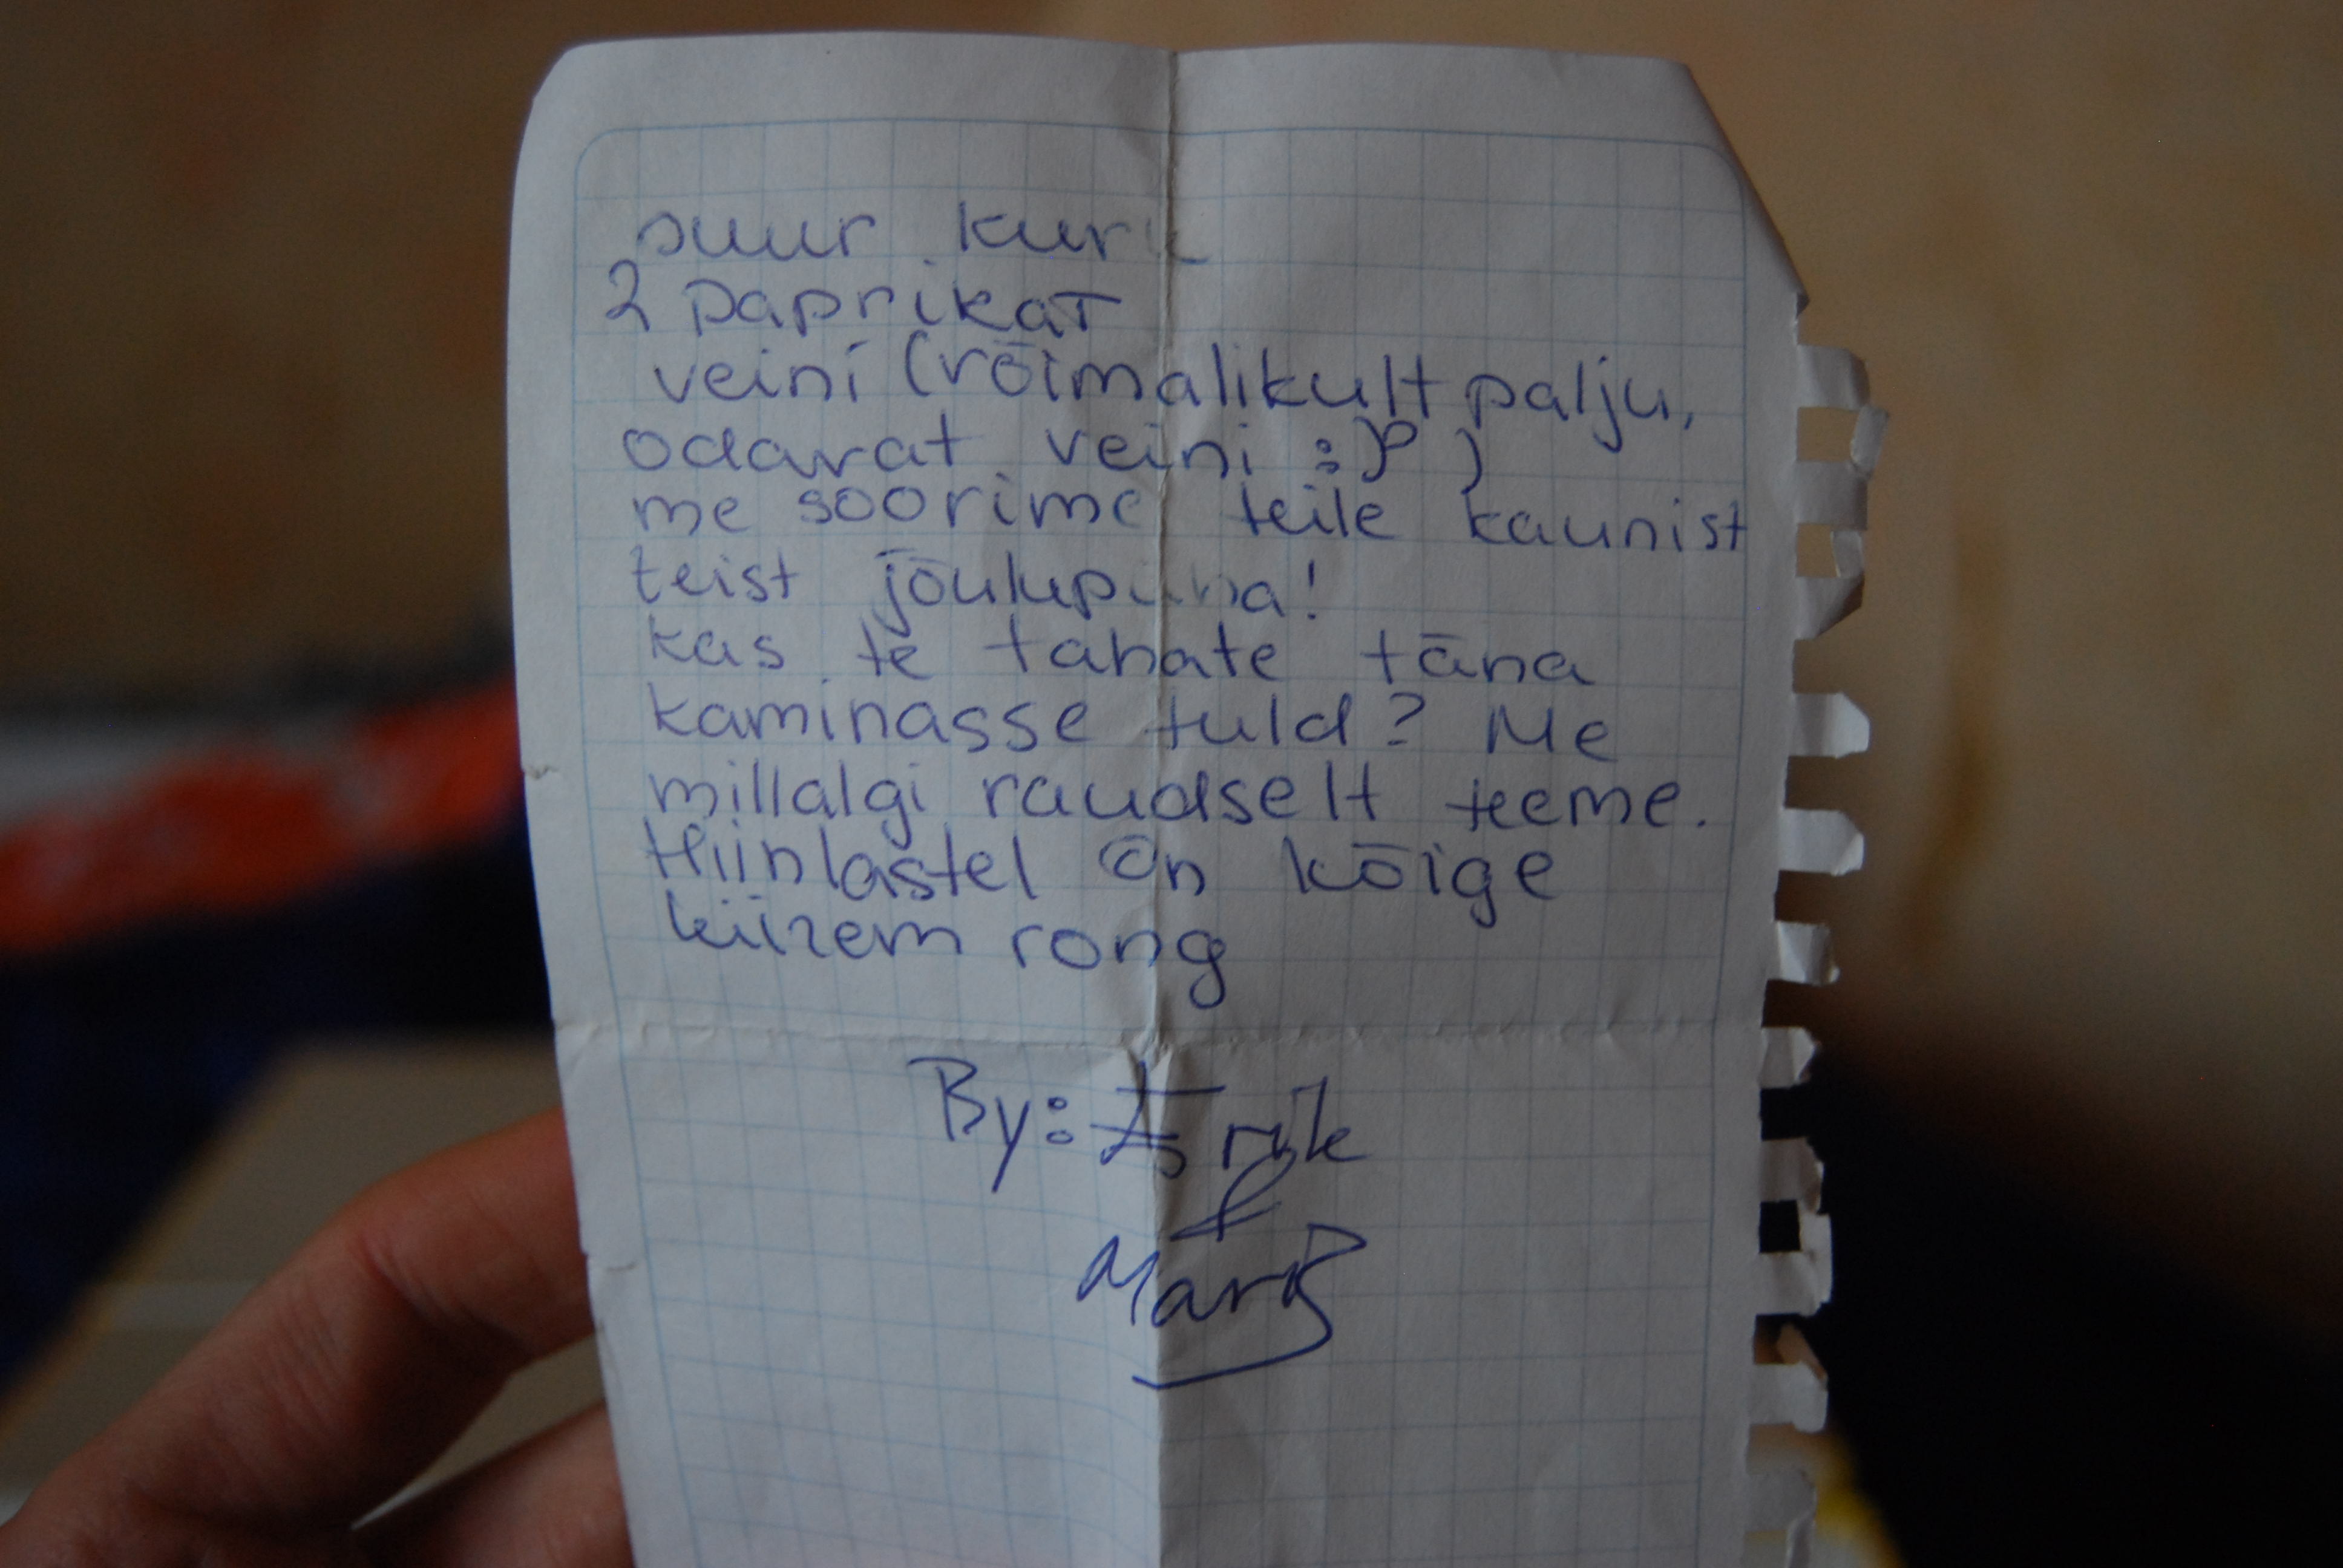 suur kurk
2 paprikat
veini (võimalikult palju,
odavat veini :)P )
me soorime teile kaunist
teist jõulupüha!
kas te tahate täna
kaminasse tuld? Me
millalgi raudselt teeme.
Hiinlastel on kõige
kiirem rong
By: Erik
&
Mark